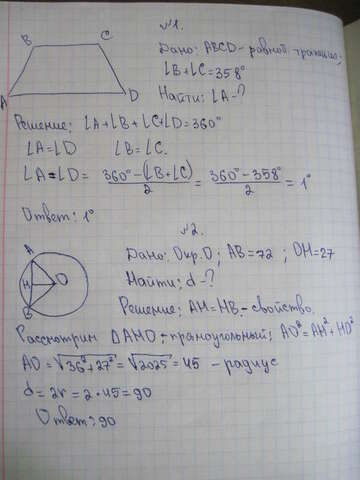 №1.
B C
A D
Дано: ABCD - равноб. трапеция;
∠B+∠C=358°
Найти: ∠A-?
Решение; ∠A+∠B+∠C+∠D=360°
∠A=∠D ∠B=∠C.
∠A=∠D= (360°-(∠B+∠C))/2 = (360°-358°)/2 = 1°
Ответ: 1°
№2.
A
H O
B
Дано: Окр. O; AB=72 ; OH=27
Найти; d-?
Решение; AH=HB - свойство.
Рассмотрим △AHO - прямоугольный; AO²=AH²+HO²
AO = √36²+27² = √2025 = 45 - радиус
d = 2r = 2·45 = 90
Ответ: 90